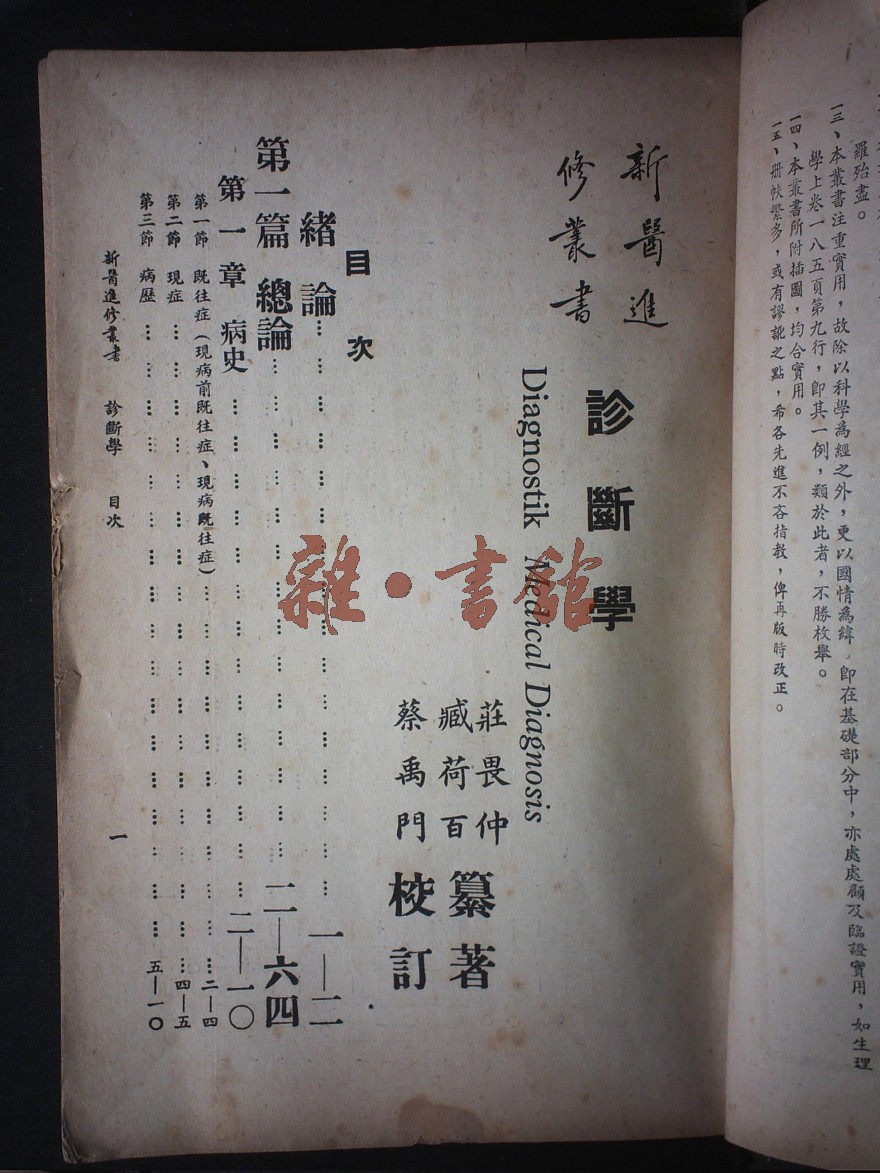 羅殆盡。
一三、本叢書注重實用，故除以科學為經之外，更以國情為緯，即在基礎部分中，亦處處顧及臨證實用，如生理
學上卷一八五頁第九行，即其一例，類於此者，不勝枚舉。
一四、本叢書所附插圖，均合實用。
一五、冊帙繁多，或有謬訛之點，希各先進不吝指教，俾再版時改正。
新醫進
修叢書
診斷學
Diagnostik Medical Diagnosis
莊畏仲
臧荷百
纂著
蔡禹門校訂
目次
緒論…………………………一—二
第一篇 總論…………………………二—六四
第一章 病史…………………………二—一〇
第一節 既往症（現病前既往症、現病既往症）…………………………二—四
第二節 現症…………………………四—五
第三節 病歷…………………………五—一〇
新醫進修叢書 診斷學 目次 一
雜·書館